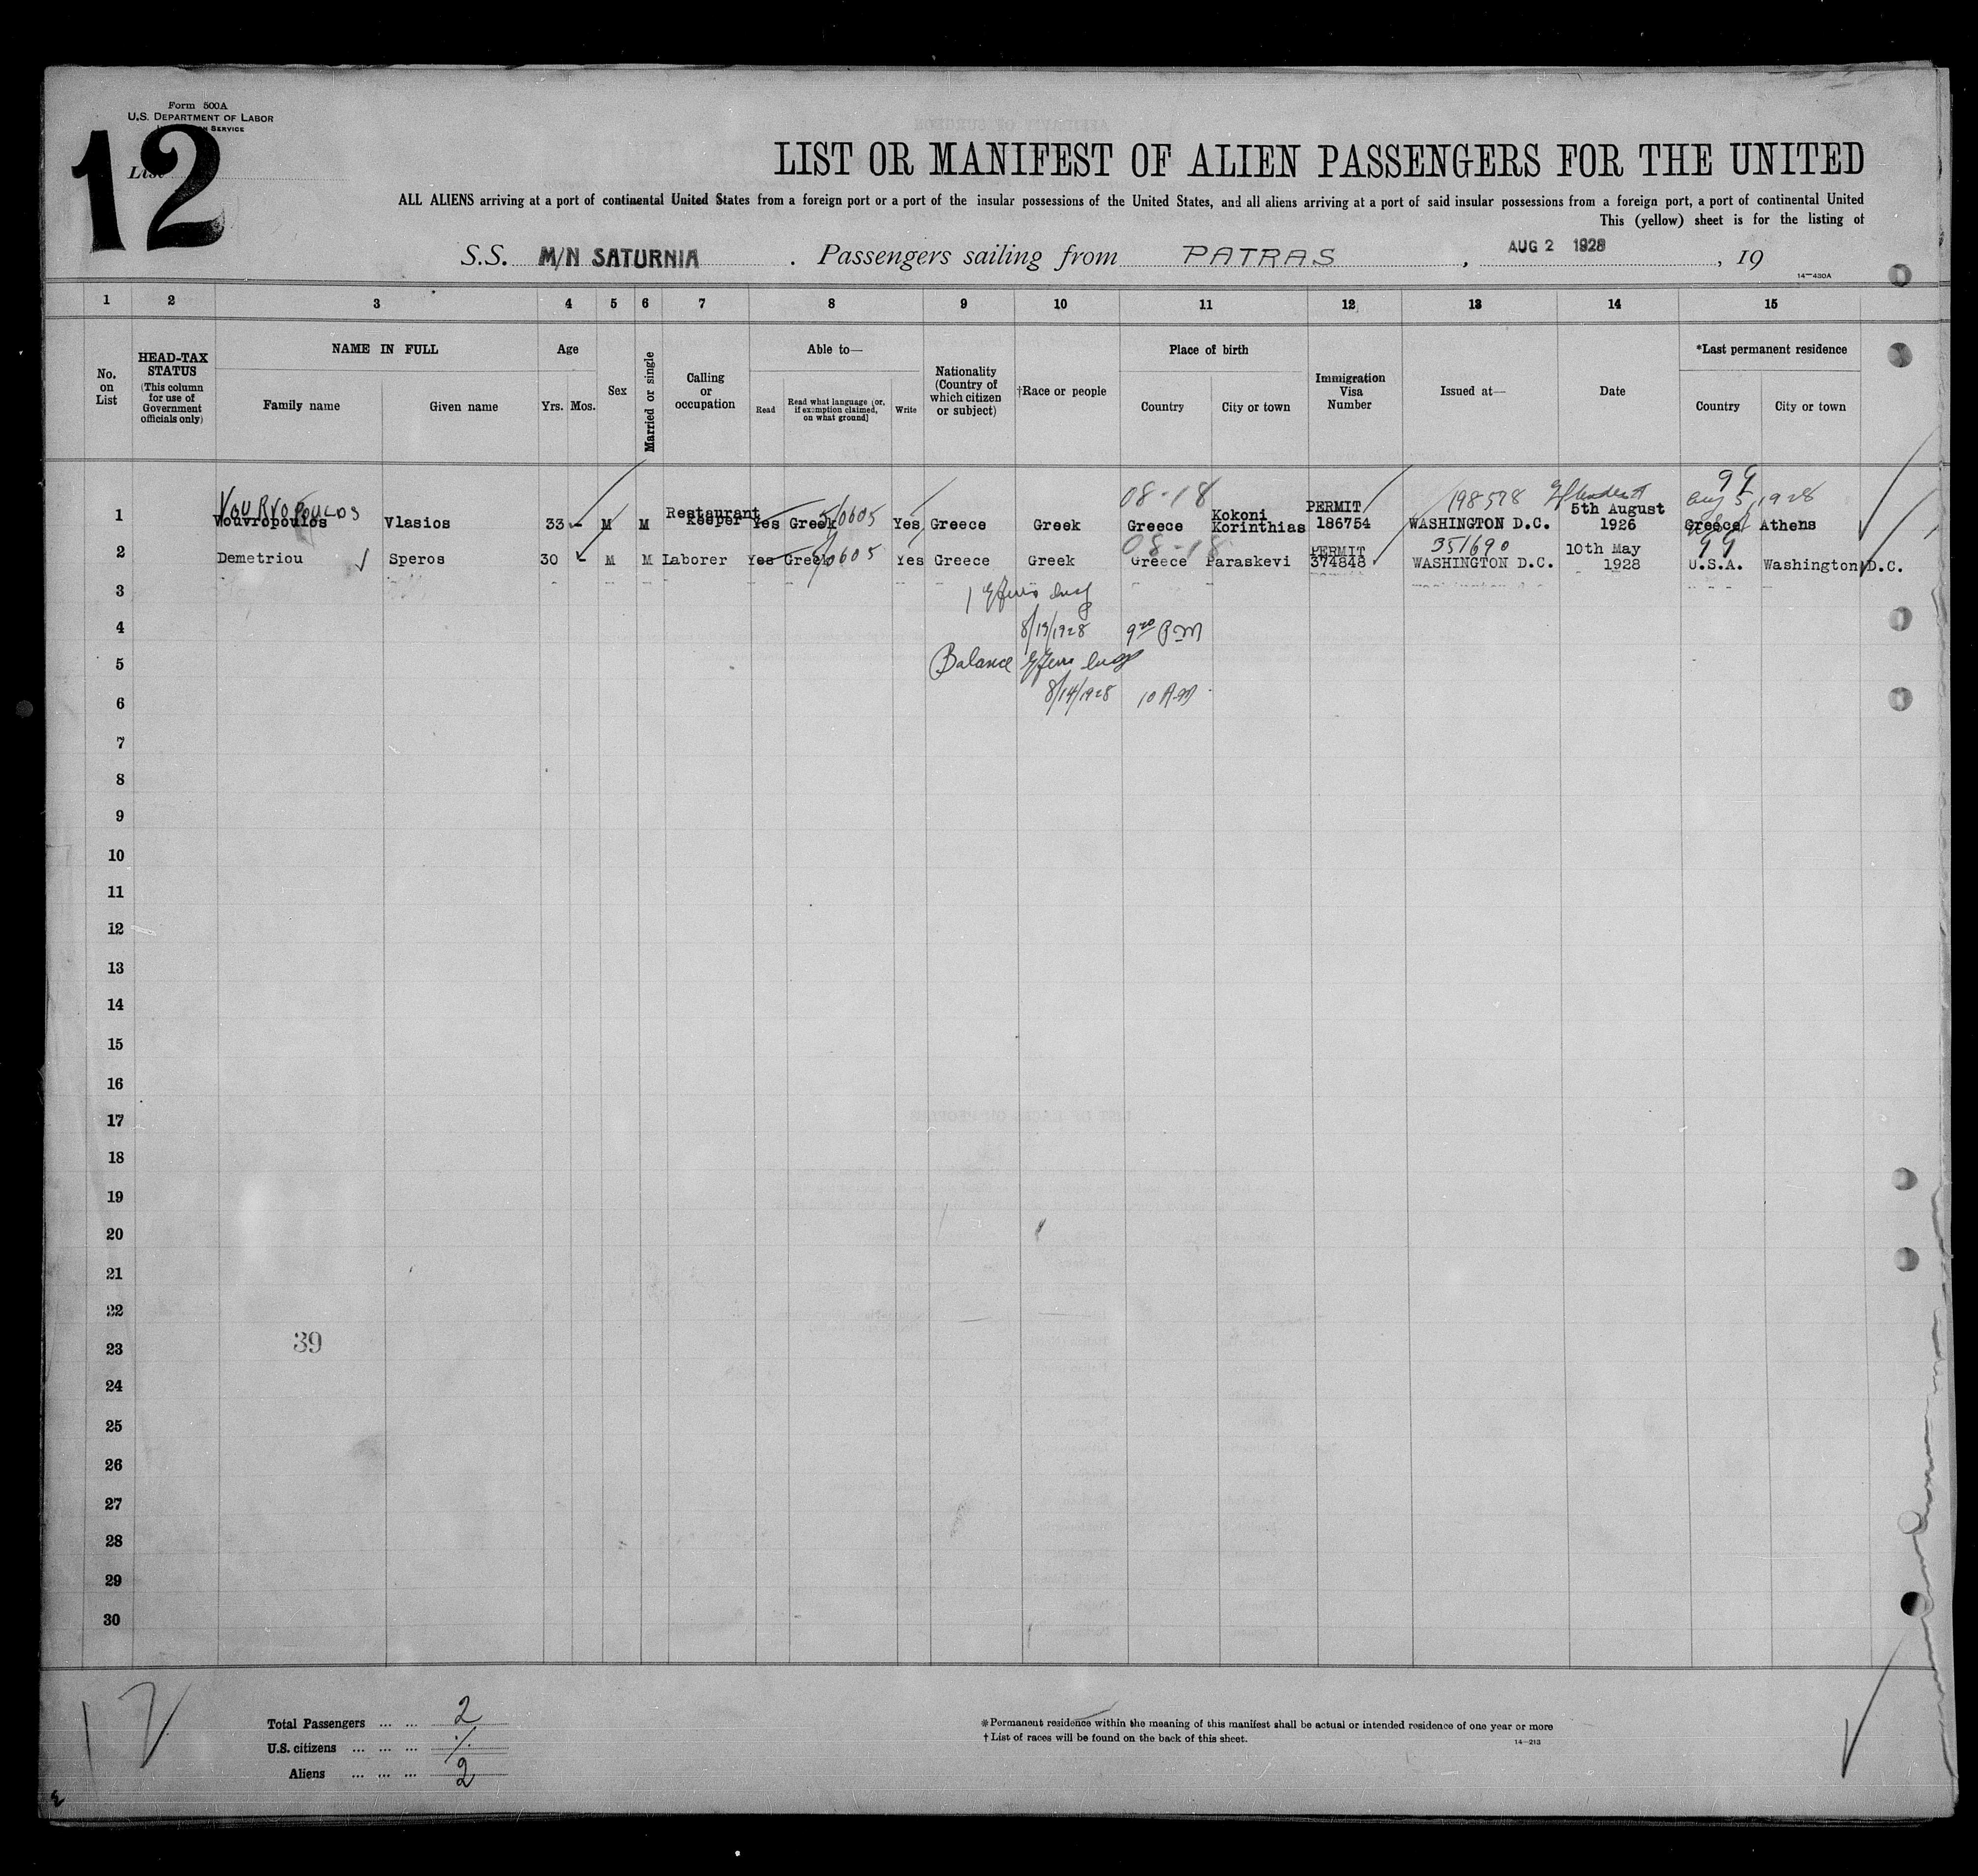 Form 500A
U.S. DEPARTMENT OF LABOR
SERVICE
List
12
LIST OR MANIFEST OF ALIEN PASSENGERS FOR THE UNITED
ALL ALIENS arriving at a port of continental United States from a foreign port or a port of the insular possessions of the United States, and all aliens arriving at a port of said insular possessions from a foreign port, a port of continental United
This (yellow) sheet is for the listing of
S.S. M/N SATURNIA . Passengers sailing from PATRAS , AUG 2 1928 , 19
14—430A
1 2 3 4 5 6 7 8 9 10 11 12 13 14 15
No. on List
HEAD-TAX STATUS (This column for use of Government officials only)
NAME IN FULL
Family name Given name
Age
Yrs. Mos.
Sex
Married or single
Calling or occupation
Able to—
Read
Read what language [or, if exemption claimed, on what ground]
Write
Nationality (Country of which citizen or subject)
†Race or people
Place of birth
Country City or town
Immigration Visa Number
Issued at—
Date
*Last permanent residence
Country City or town
08-18 198578 99
Aug 5, 1928
VouBroPoulos
1 Vouvropoulos Vlasios 33 - M M Restaurant Keeper Yes Greek 5/0605 Yes Greece Greek Greece Kokoni Korinthias PERMIT 186754 WASHINGTON D.C. 5th August 1926 Greece Athens
08-18 351690 99
2 Demetriou Speros 30 - M M Laborer Yes Greek 5/0605 Yes Greece Greek Greece Paraskevi PERMIT 374848 WASHINGTON D.C. 10th May 1928 U.S.A. Washington D.C.
3
4 8/13/1928 9 20 PM
5 Balance
6 8/14/1928 10 AM
7
8
9
10
11
12
13
14
15
16
17
18
19
20
21
22
23
39
24
25
26
27
28
29
30
Total Passengers ... ... 2
U.S. citizens ... ... ...
Aliens ... ... ... 2
*Permanent residence within the meaning of this manifest shall be actual or intended residence of one year or more
†List of races will be found on the back of this sheet.
14—213